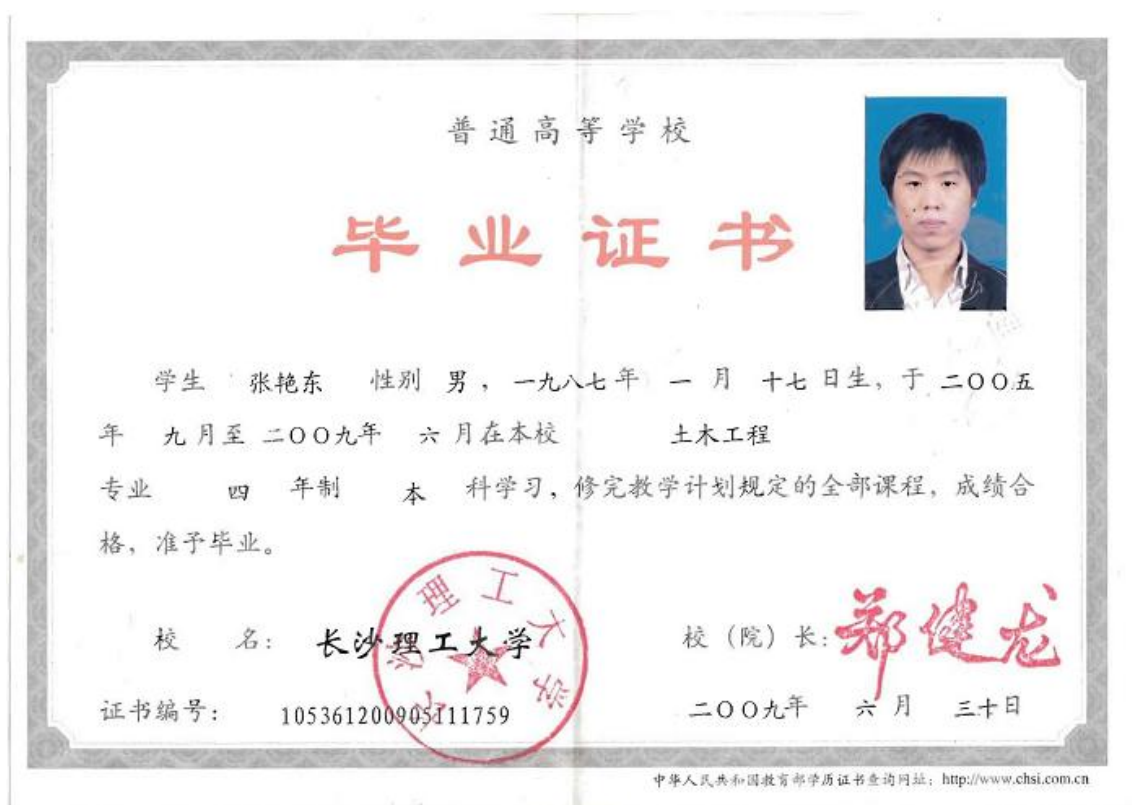 普通高等学校
毕业证书
学生 张艳东 性别 男，一九八七年 一 月 十七日生，于 二〇〇五
年 九月至 二〇〇九年 六 月在本校 土木工程
专业 四 年制 本 科学习，修完教学计划规定的全部课程，成绩合
格，准予毕业。
长沙理工大学
校 名： 长沙理工大学 校（院）长：郑健龙
证书编号： 105361200905111759 二〇〇九年 六 月 三十日
中华人民共和国教育部学历证书查询网址：http://www.chsi.com.cn